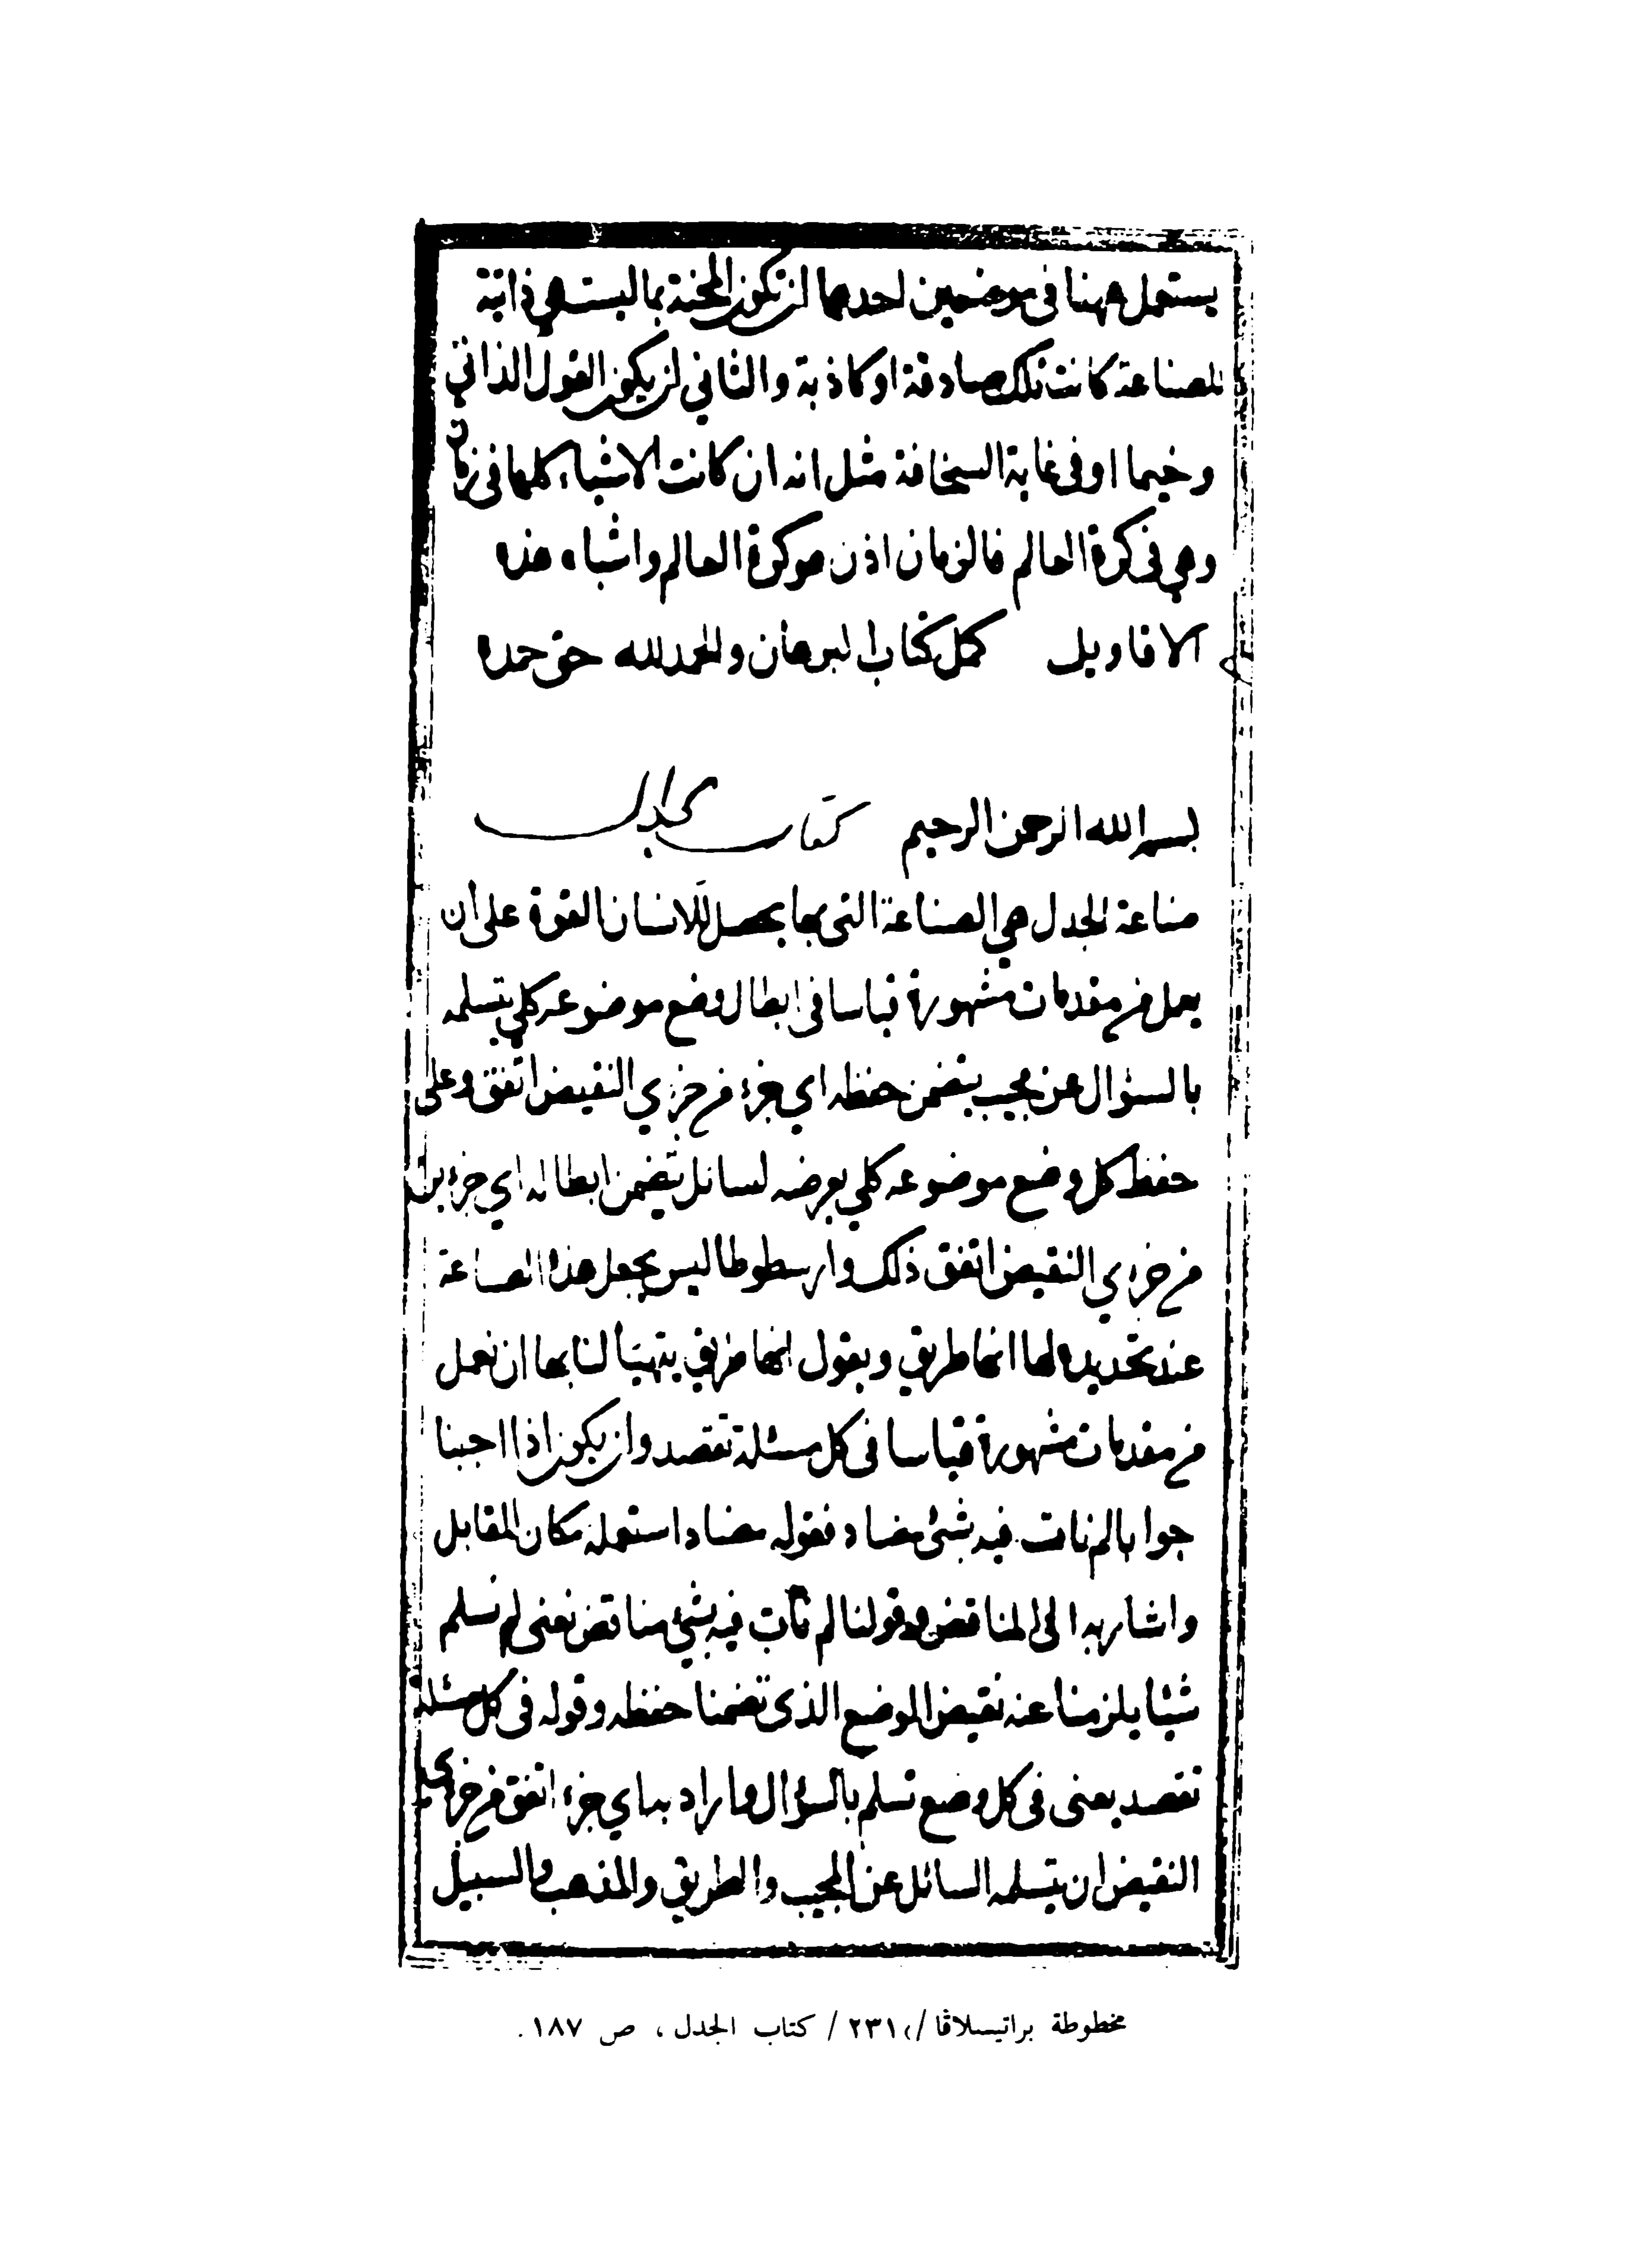 يستعمل ههنا فى موضعين احدهما ان تكون المحنة بما ليست هي ذاتية
للصناعة كانت تلك صادقة او كاذبة والثاني ان يكون القول الذاتي
وخيما او فى غاية السخافة مثل انه ان كانت الاشياء كلها فى زمان
وهي فى كرة العالم فالزمان اذن هو كرة العالم واشباه هذه
الاقاويل كمل كتاب البرهان والحمد لله حق حمده
بسم الله الرحمن الرحيم كتاب الجدل
صناعة الجدل هي الصناعة التى بها يحصل للانسان القوة على ان
يعمل من مقدمات مشهورة قياسا فى ابطال وضع موضوعه كلي يتسلمه
بالسؤال عن مجيب يتضمن حفظه اي جزء من جزءي النقيض اتفق وعلى
حفظ كل وضع موضوعه كلي يعرضه لسائل يتضمن ابطاله اي جزء
من جزءي النقيض اتفق ذلك وارسطوطاليس يجعل هذا الصناعة
عند تحديده لها انها طريق ويقول انها طريق يتهيأ لنا بها ان نعمل
من مقدمات مشهورة قياسا فى كل مسئلة تقصد وان يكون اذا اجبنا
جوابا لم نات فيه بشئ مضاد فقوله مضاد استعمله مكان المقابل
واشار به الى المناقض وقولنا لم نات فيه بشئ مناقض نعنى لم نسلم
شيئا يلزمنا عنه نقيض الوضع الذى تضمنا حفظه وقوله فى كل مسئلة
تقصد يعنى فى كل وضع تسلم بالسؤال واراد به اي جزء اتفق من جزءي
النقيض ان يتسلمه السائل عن المجيب والطريق والمذهب والسبيل
مخطوطة براتيسلاڤا /٢٣١/ كتاب الجدل ، ص ١٨٧.